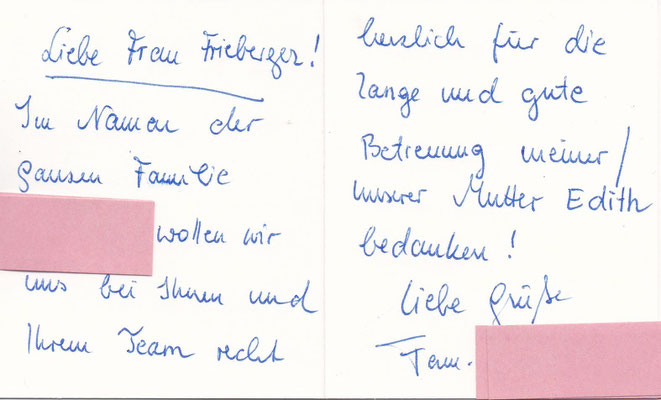 Liebe Frau Frieberger!
Im Namen der
ganzen Familie
wollen wir
uns bei Ihnen und
Ihrem Team recht
herzlich für die
lange und gute
Betreuung meiner/
unserer Mutter Edith
bedanken!
Liebe Grüße
Fam.